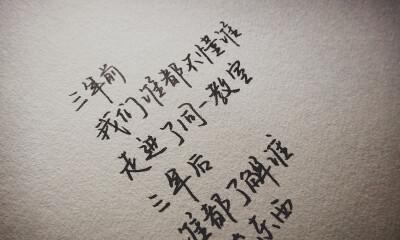 三年前
我们谁都不懂谁
走进了同一教室
三年后
谁都了解谁
东西